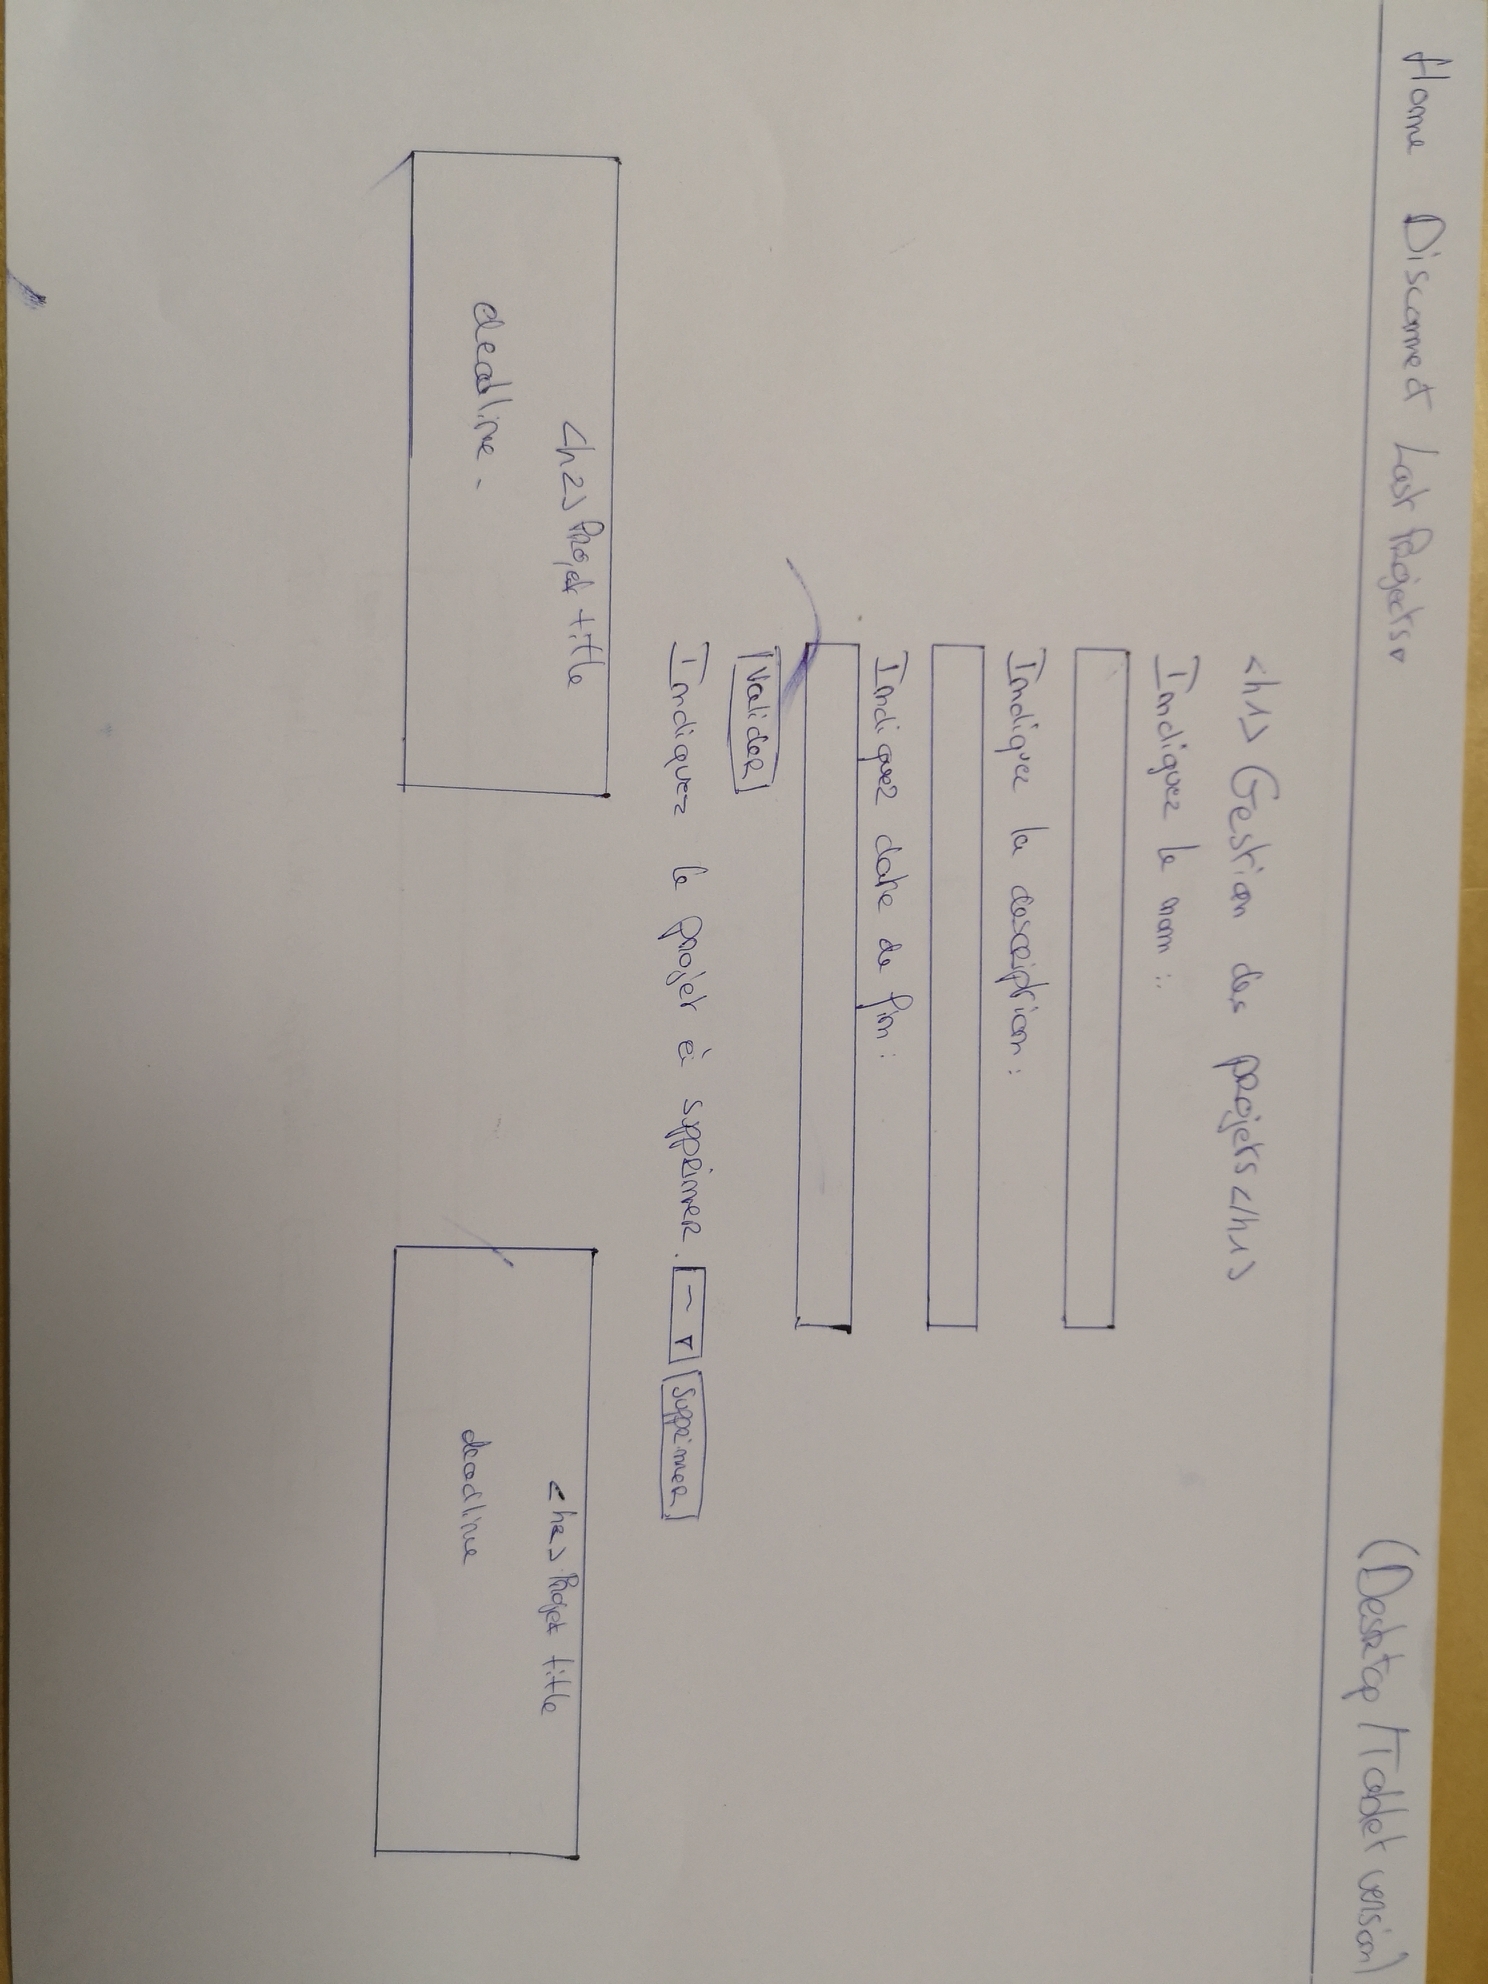 Home Disconnect Last Projects ▾ (Desktop / Tablet version)
<h1> Gestion des projets </h1>
Indiquez le nom :
Indiquez la description :
Indiquez date de fin :
Valider
Indiquez le projet à supprimer. - ▾ Supprimer
<h2> Projet title
deadline -
<h2> Projet title
deadline